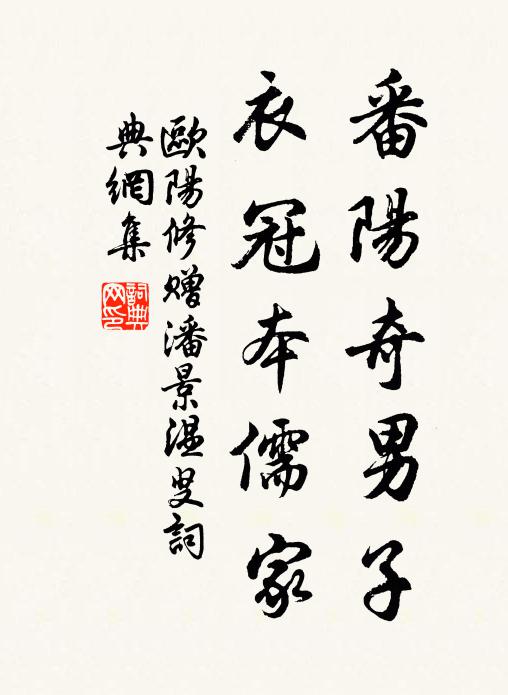 番陽奇男子
衣冠本儒家
歐陽修贈潘景溫叟詞
典網集
詞典
网印